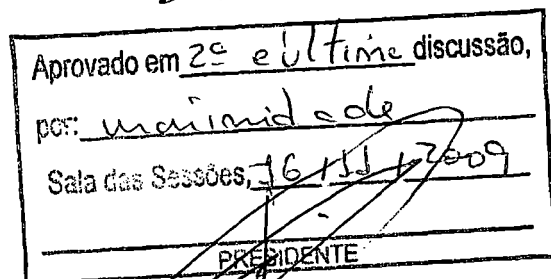 Aprovado em 2ª e última discussão,
por: unanimidade
Sala das Sessões, 16/11/2009
PRESIDENTE